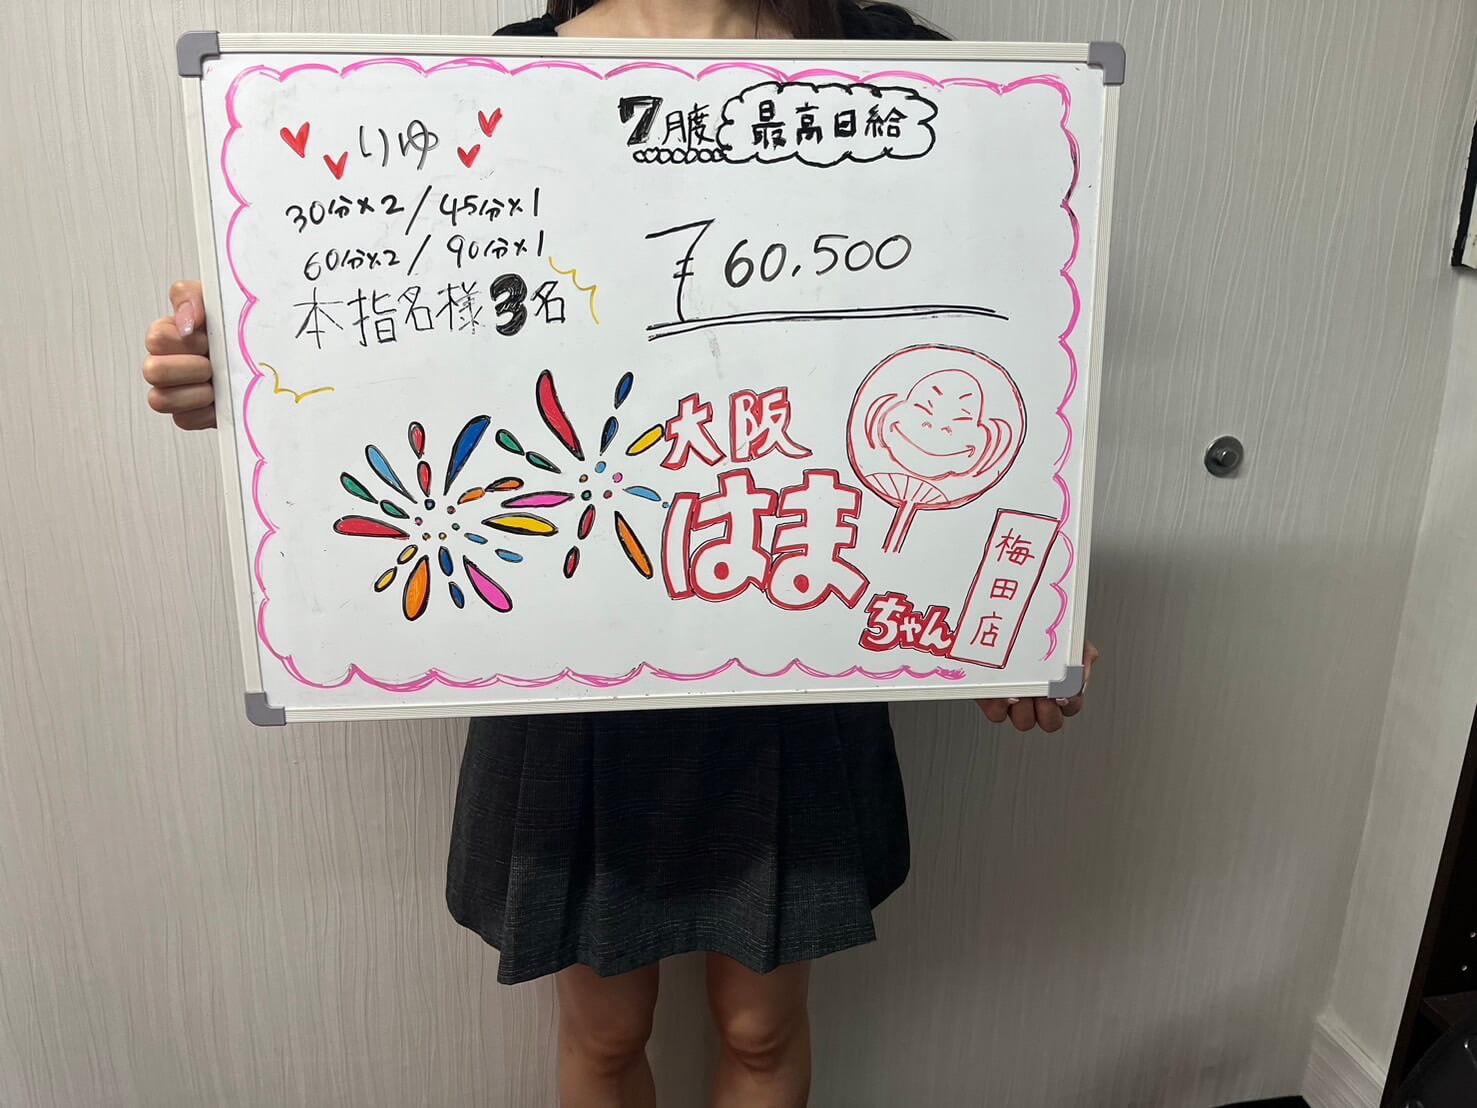 りゆ
30分×2/45分×1
60分×2/90分×1
本指名様3名
7月度 最高日給
¥60,500
大阪
はま
ちゃん
梅田店